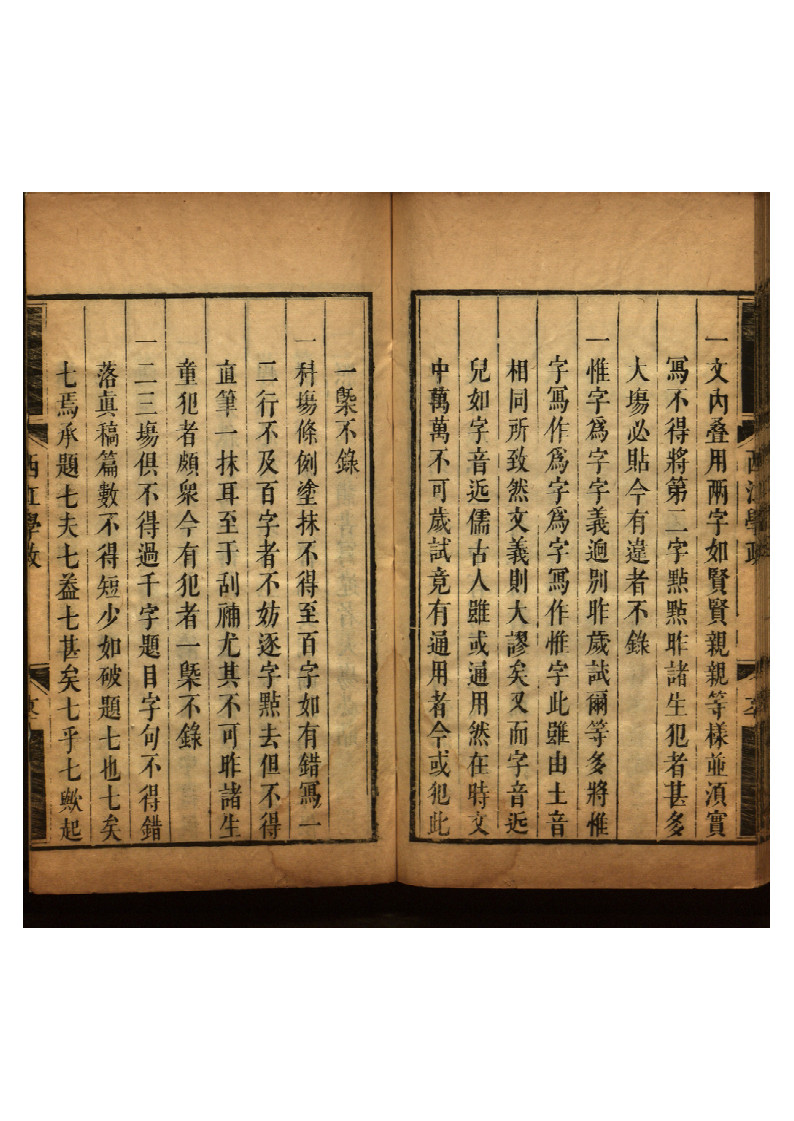 一文内疊用兩字如賢賢親親等樣並湏實
寫不得將第二字點點昨諸生犯者甚多
大塲必貼今有違者不錄
一惟字爲字字義逈別昨歲試爾等多將惟
字寫作爲字爲字寫作惟字此雖由土音
相同所致然文義則大謬矣又而字音近
兒如字音近儒古人雖或通用然在時文
中萬萬不可歲試竟有通用者今或犯此
西江學政
一槩不錄
一科塲條例塗抹不得至百字如有錯寫一
二行不及百字者不妨逐字點去但不得
直筆一抹耳至于刮補尤其不可昨諸生
童犯者頗衆今有犯者一槩不錄
一二三塲俱不得過千字題目字句不得錯
落眞稿篇數不得短少如破題七也七矣
七焉承題七夫七葢七甚矣七乎七歟起
西江學政